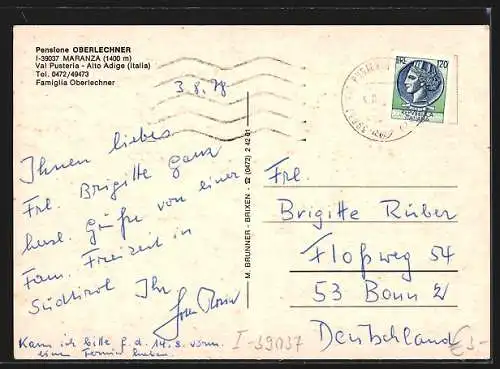 Pensione OBERLECHNER
I-39037 MARANZA (1400 m)
Val Pusteria - Alto Adige (Italia)
Tel. 0472/49473
Famiglia Oberlechner
3.8.78
Ihnen liebes
Frl. Brigitte ganz
herzl. Grüße von einer
Fam. Freizeit in
Südtirol Ihr
Kann ich bitte f. d. 14.8. vorm.
einen Termin haben.
M. BRUNNER - BRIXEN - ☎ (0472) 2 42 01
LIRE 120
Frl.
Brigitte Rüber
Floßweg 54
53 Bonn 2
Deutschland
I-39037
€3-